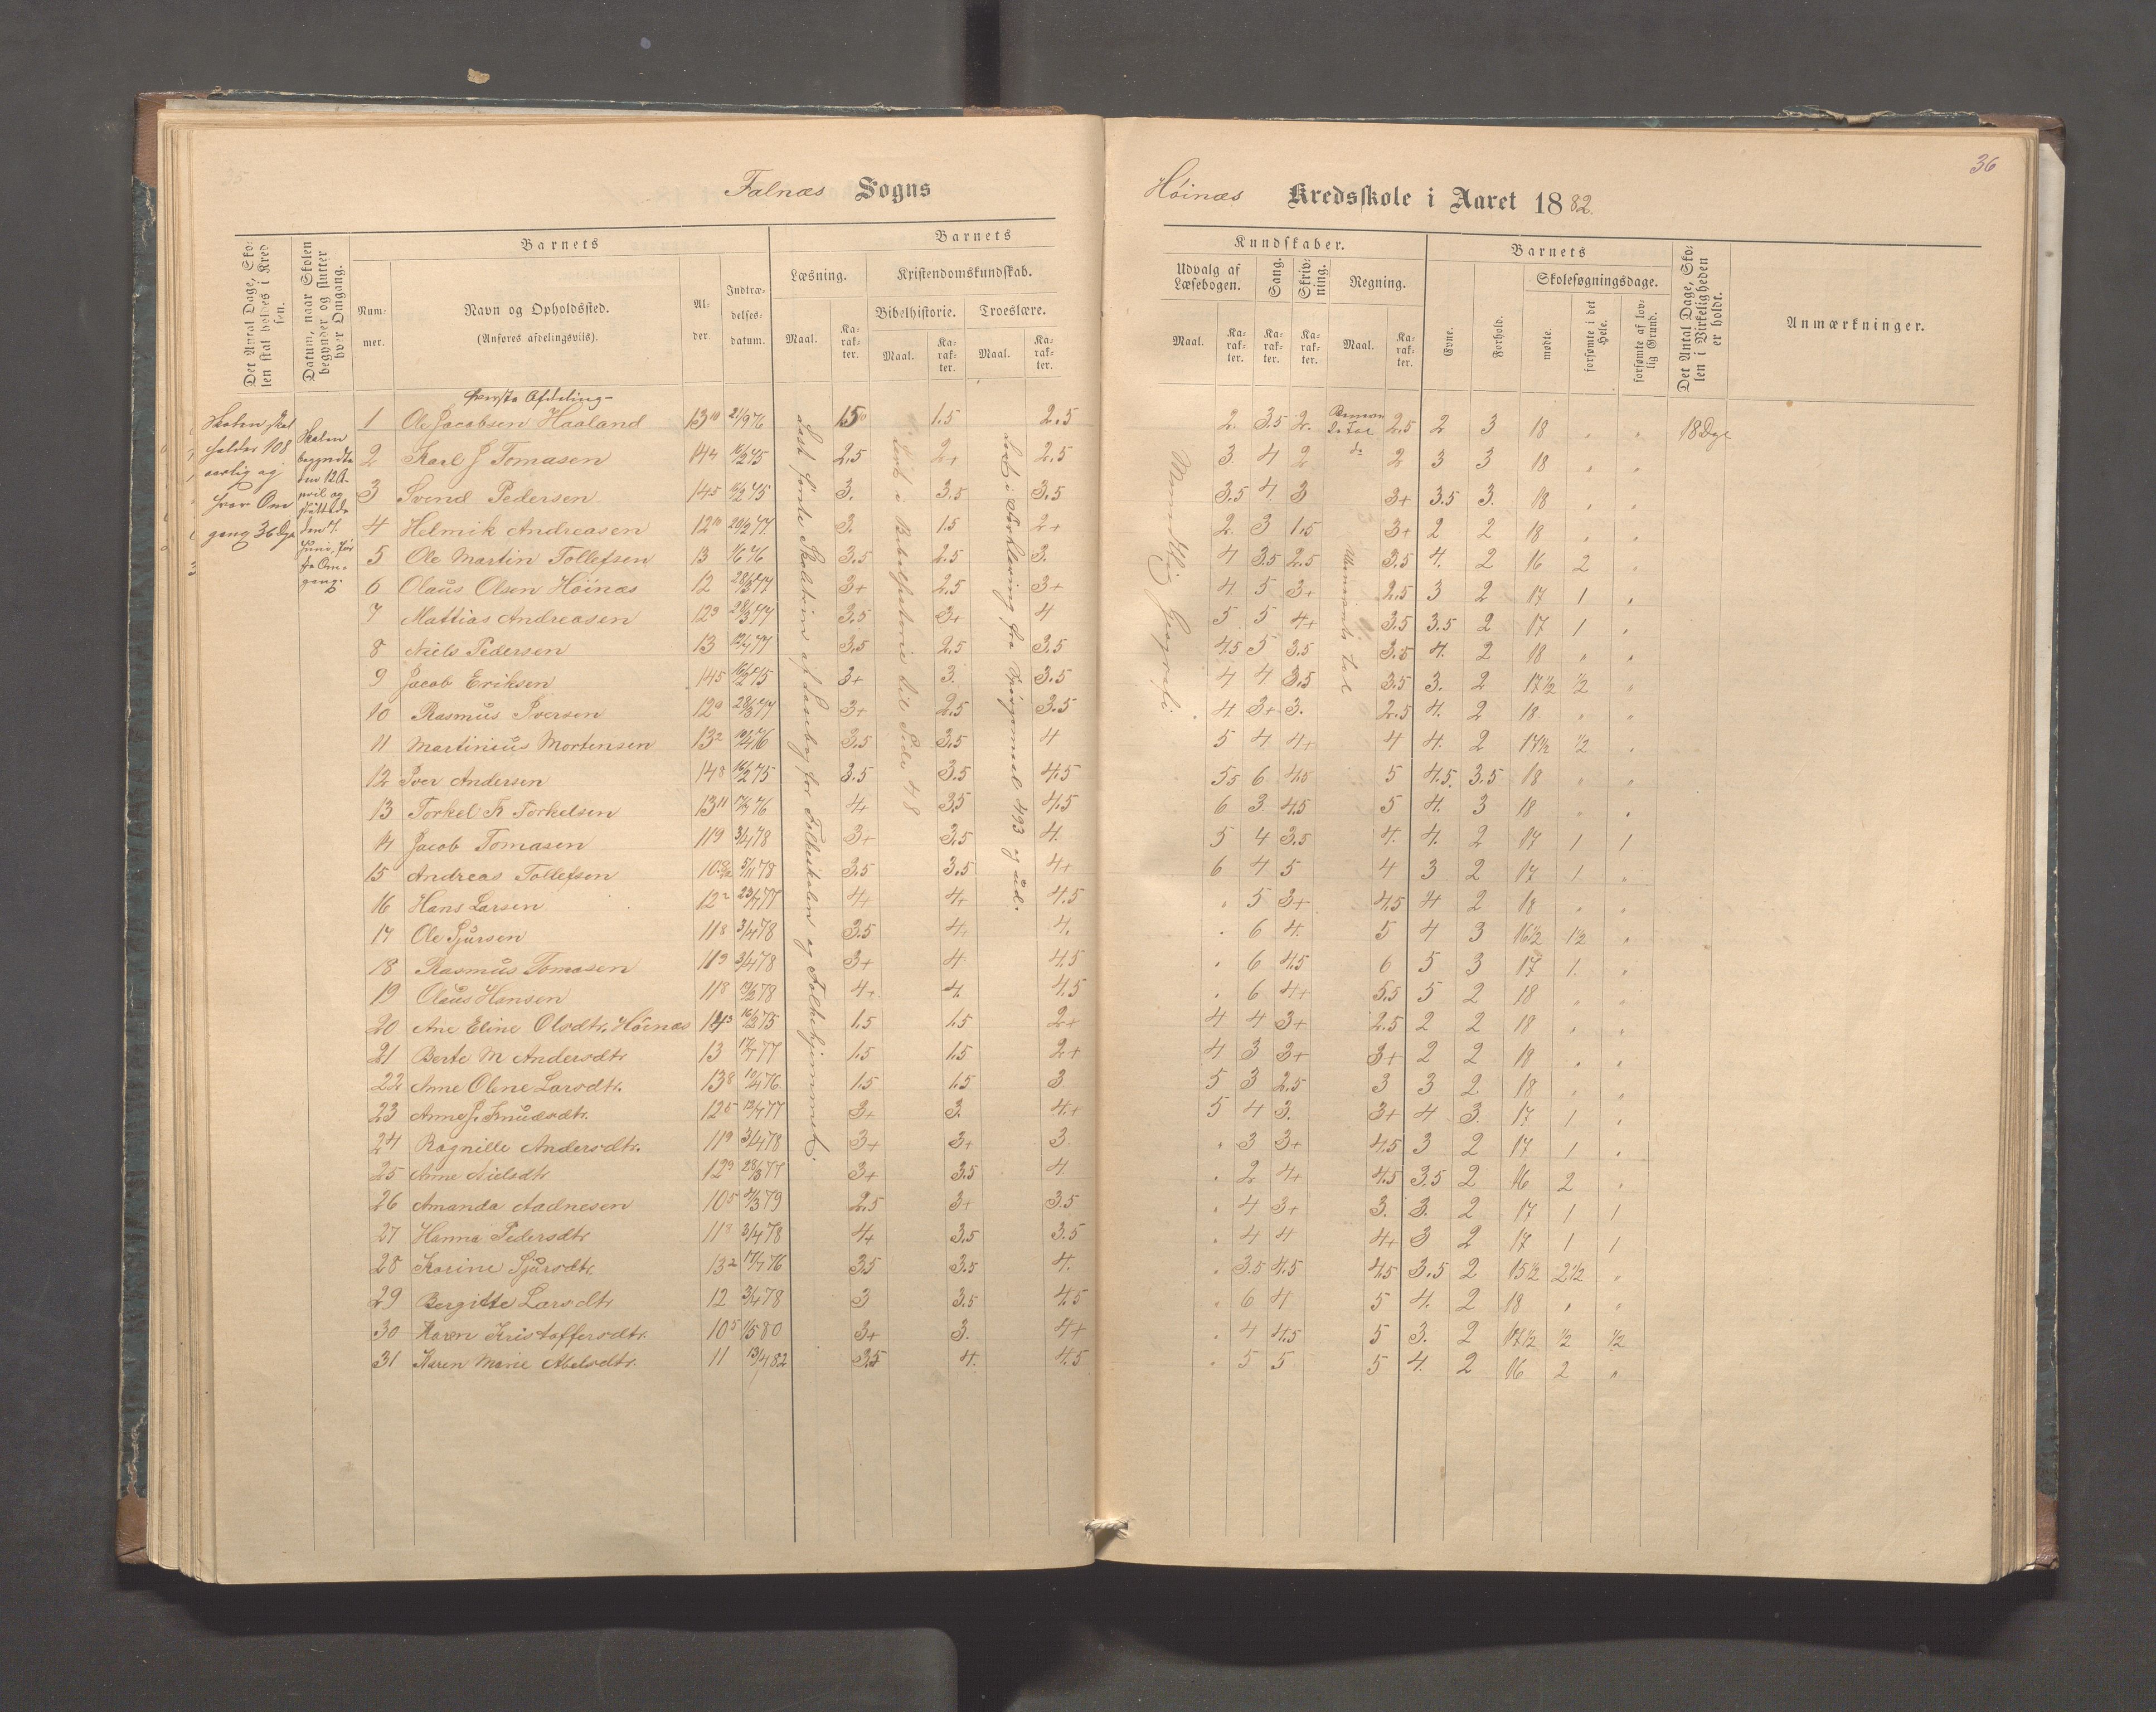 Falnæs Sogns
Høinæs Kredsskole i Aaret 1882.
36
Det Antal Dage, Sko-
len skal holdes i Kred
sen.
Datum, naar Skolen
begynder og slutter
hver Omgang.
Barnets
Num-
mer.
Navn og Opholdssted.
(Anføres afdelingsviis)
Al-
der
Indtræ-
delses-
datum.
Barnets
Læsning.
Maal.
Ka-
rak-
ter.
Kristendomskundskab.
Bibelhistorie.
Maal.
Ka-
rak-
ter.
Troeslære.
Maal.
Ka-
rak-
ter.
Kundskaber.
Udvalg af
Læsebogen.
Maal.
Ka-
rak-
ter.
Sang.
Ka-
rak-
ter.
Skriv-
ning.
Ka-
rak-
ter.
Regning.
Maal.
Ka-
rak-
ter.
Barnets
Evne.
Forhold.
Skolesøgningsdage.
mødte.
forsømte i det
Hele.
forsømte af lov-
lig Grund.
Det Antal Dage, Sko-
len i Virkeligheden
er holdt.
Anmærkninger.
Skolen skal
holdes 108
aarlig og
hver Om
gang 36 Dge
Skolen
begyndte
den 12 A-
pril og
sluttede
den 7.
Juni, før
ste Om-
gang.
Øverste Afdeling
Læst første Skoletrin af Læsebog for Folkeskolen og Folkehjemmet.
Lært i Bibelhistorie til Side 48
Lært i Forklaring fra Spørgsmaal 493 og ud.
Geografi
1 Ole Jacobsen Haaland 13 10 21/9 76 1.5 1.5 2.5 2. 3.5 2. 2.5 2 3 18 " " 18 Dge
2 Karl J Tomasen 14 4 16/2 75 2.5 2+ 2.5 3. 4 2 do 2 3 3 18 " "
3 Svend Pedersen 14 5 16/2 75 3. 3.5 3.5 3.5 4. 3 3+ 3.5 3. 18 " "
4 Helmik Andreasen 12 10 20/3 77 3. 1.5 2+ 2. 3 1.5 3+ 2 2 18 " "
5 Ole Martin Tollefsen 13 76 3.5 2.5 3. 4 3.5 2.5 3.5 4. 2 16 2 "
6 Olaus Olsen Høinæs 12 28/3 77 3+ 2.5 3+ 4. 5 3+ 2.5 3 2 17 1 "
7 Mattias Andreasen 12 9 28/3 77 3.5 3+ 4 5 5 4+ 3.5 3.5 2 17 1 "
8 Niels Pedersen 13 77 3.5 2.5 3.5 4.5 5 3.5 3.5 4. 2 18 " "
9 Jacob Eriksen 14 5 16/2 75 3+ 3. 3.5 4 4 3.5 3.5 3. 2 17 1/2 1/2 "
10 Rasmus Iversen 12 9 28/3 77 3+ 2.5 3.5 4. 3+ 3. 2.5 4. 2 18 " "
11 Martinius Mortensen 13 2 76 3.5 3.5 4 5 4 4+ 4 4. 2 17 1/2 1/2 "
12 Iver Andersen 14 8 16/2 75 3.5 3.5 4.5 5.5 6 4.5 5 4.5 3.5 18 " "
13 Torkel Torkelsen 13 11 76 4+ 3.5 4.5 6 3 4.5 5 4. 3 18 " "
14 Jacob Tomasen 11 9 3/4 78 3+ 3.5 4. 5 4 3.5 4. 4. 2 17 1 1
15 Andreas Tollefsen 5/11 78 3.5 3.5 4+ 6 4 5 4 3 2 17 1 "
16 Hans Larsen 12 2 77 4+ 4+ 4.5 " 5 3+ 4.5 4 2 18 " "
17 Ole Sjursen 11 8 3/4 78 3.5 4+ 4. " 6 4. 5 4 3 16 1/2 1 1/2 "
18 Rasmus Tomasen 11 9 3/4 78 3+ 4 4.5 " 6 4.5 6 5 3 17 1. "
19 Olaus Hansen 11 8 78 4+ 4. 4.5 " 6 4+ 5.5 5 2 18 " "
20 Ane Eline Olsdtr. Høinæs 14 3 16/2 75 1.5 1.5 2+ 4 4 3+ 2.5 2 2 18 " "
21 Berte M Andersdtr 13 77 1.5 1.5 2+ 4. 3 3+ 3+ 2 2 18 " "
22 Anne Olene Larsdtr. 13 8 76 1.5 1.5 3 5 3 2.5 3 3 2 18 " "
23 Anne J. Knudsdtr. 12 5 77 3+ 3. 4.+ 5 4 3. 3+ 4 3. 17 1 "
24 Ragnille Andersdtr. 11 9 3/4 78 3+ 3+ 3. " 3 3+ 4.5 3 2 17 1 "
25 Anne Nielsdtr 12 9 28/3 77 3+ 3.5 4. " 2 4+ 4.5 3.5 2 16 2 "
26 Amanda Aadnesen 10 5 79 2.5 3+ 3.5 " 4 3+ 3. 3. 2 17 1 1
27 Hanna Pedersdtr 11 8 3/4 78 4+ 3.5 3.5 " 4 4 4+ 3 2 17 1 1
28 Karine Sjursdtr. 13 2 76 3.5 3.5 4. " 3.5 4.5 4.5 3.5 2 15 1/2 2 1/2 "
29 Bergitte Larsdtr 12 3/4 78 3 3.5 4.5 " 6 4 5 4. 2 18 " "
30 Karen Kristoffersdtr. 10 5 80 3+ 3. 4+ " 4 4.5 5 3. 2 17 1/2 1/2 1/2
31 Karen Marie Abelsdtr. 11 13/4 82 3.5 4. 4.5 " 5 5 5 4. 2 16 2 "